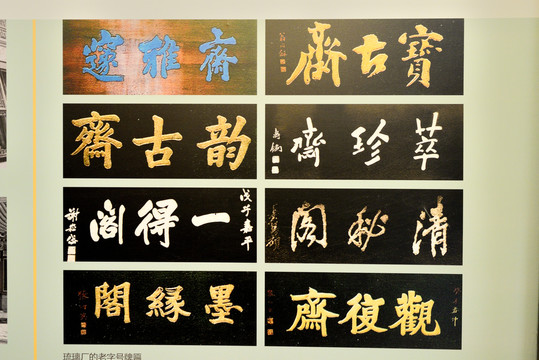 邃雅齋
寶古齋
韵古齋
萃珍齋
戊子嘉平
一得閣
謝崧岱
清秘閣
墨緣閣
觀復齋
琉璃厂的老字号牌匾